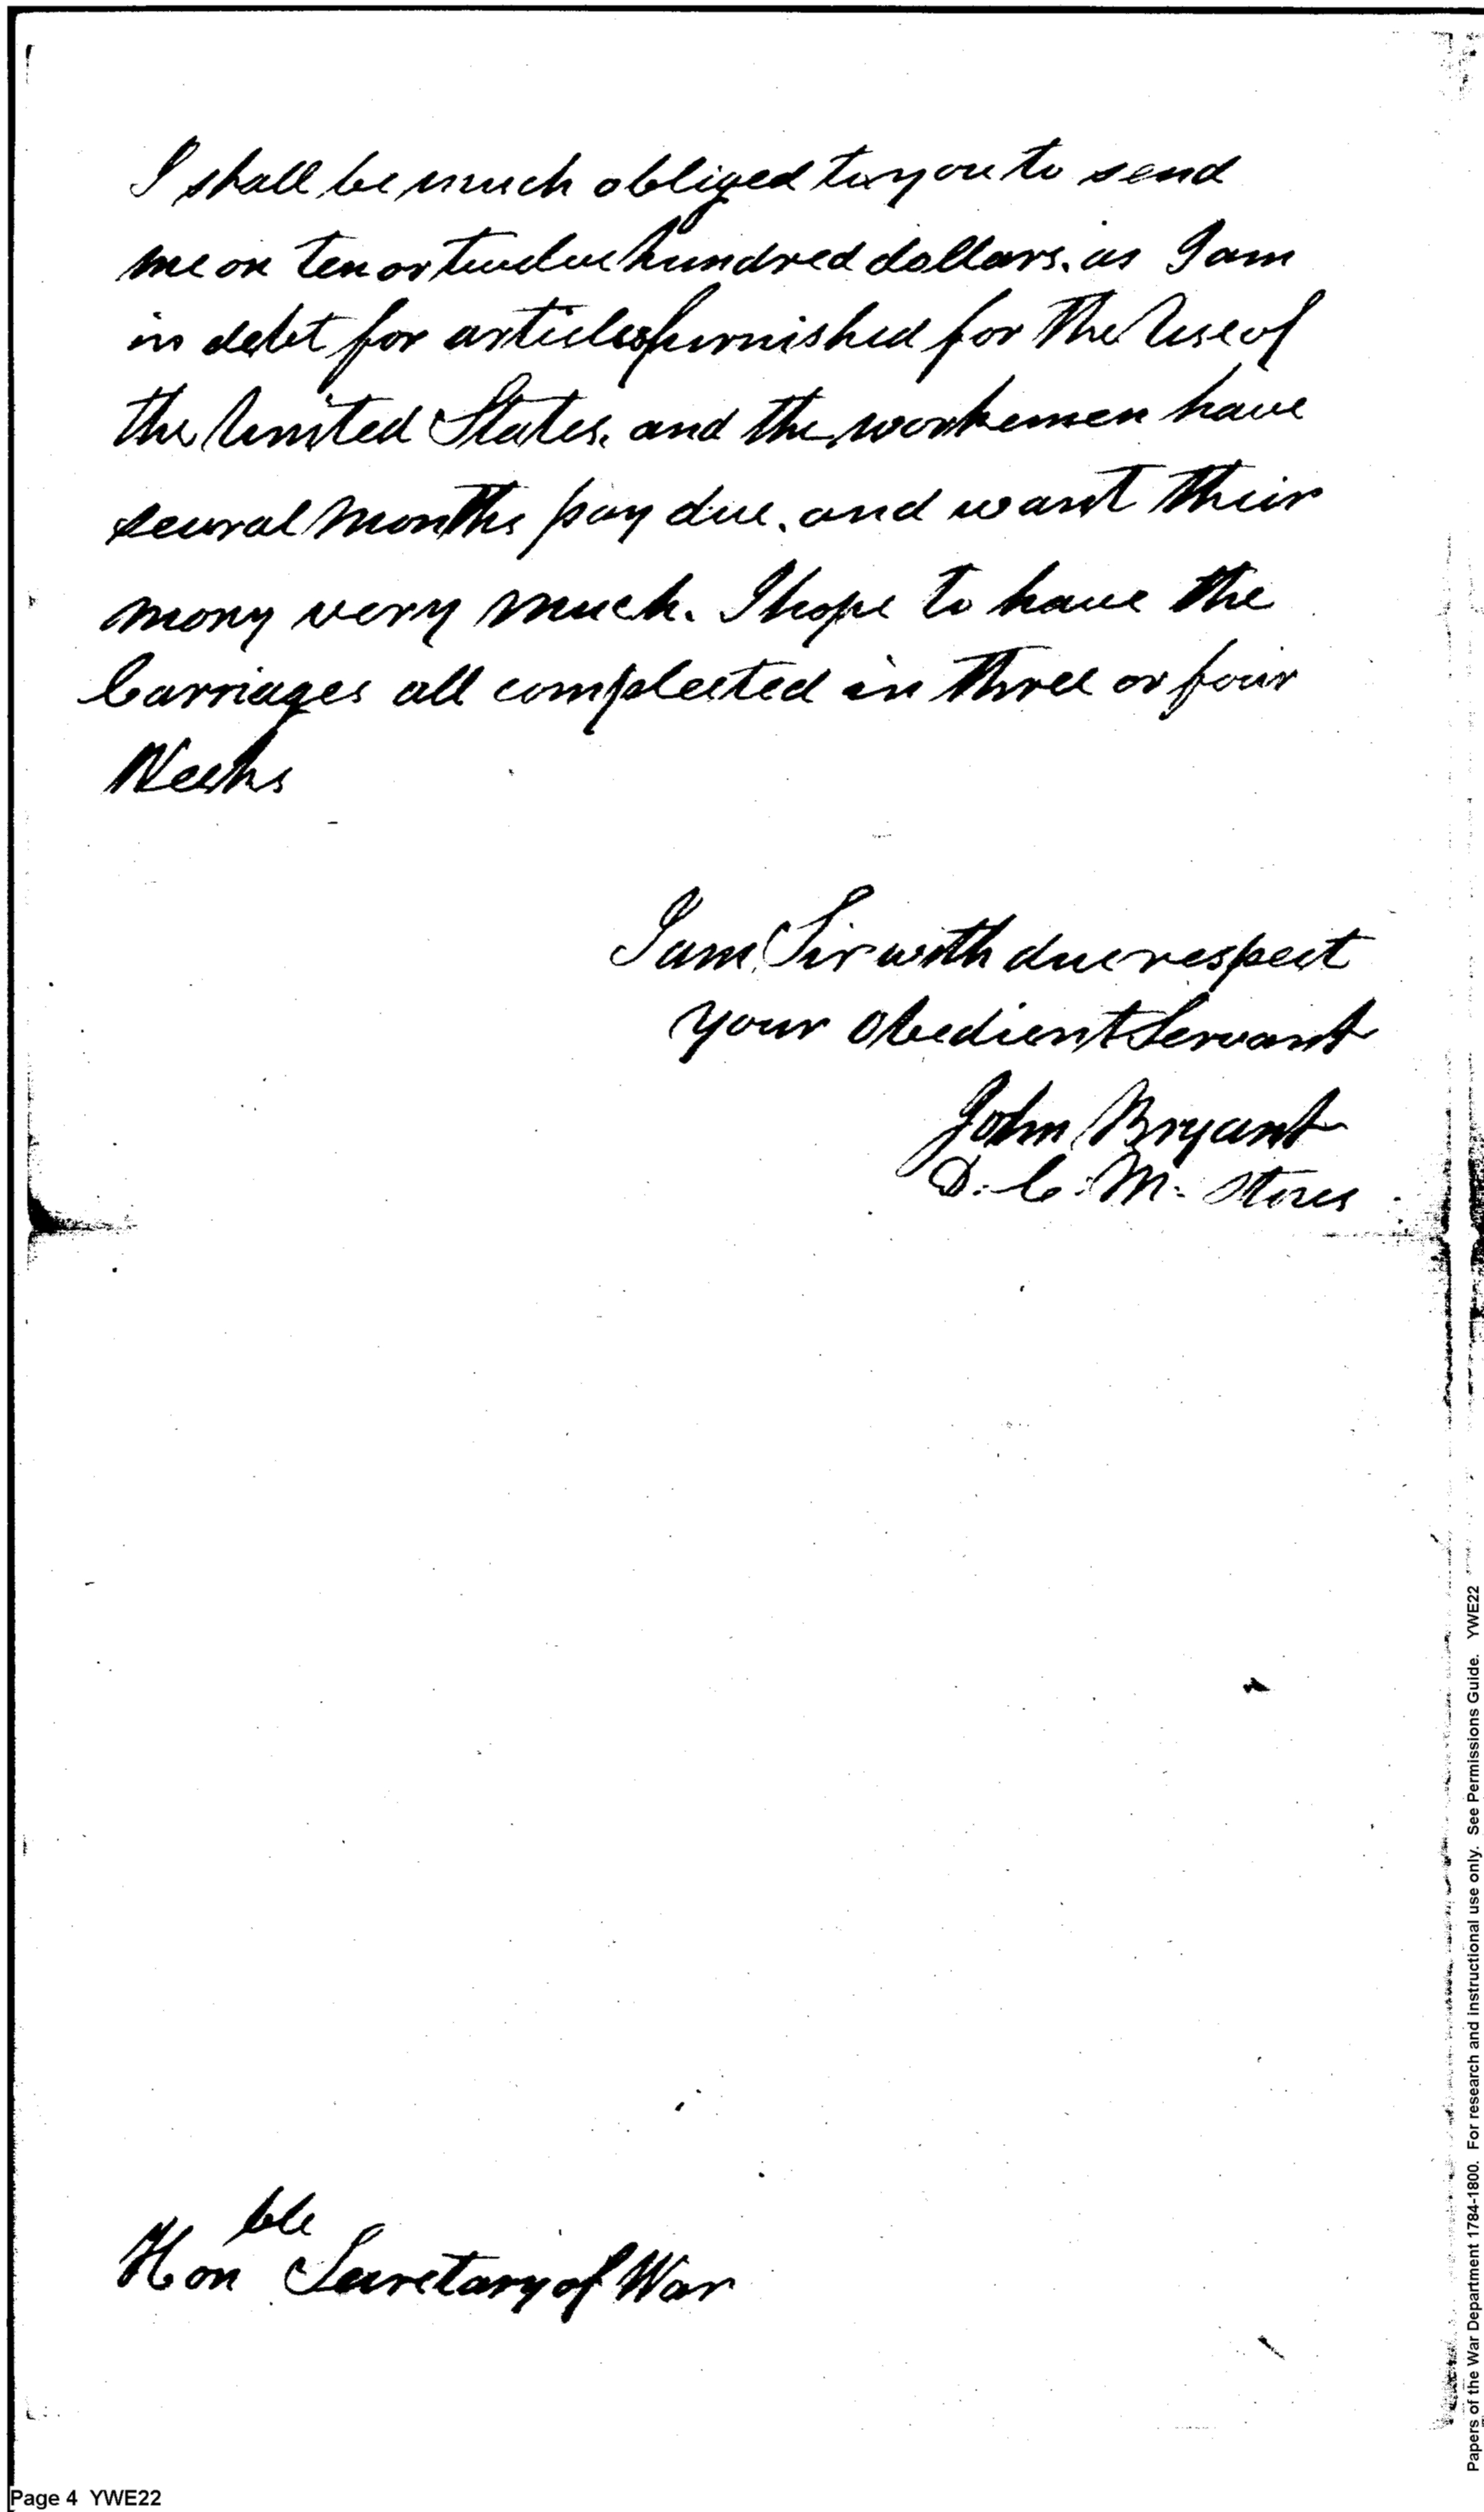 I shall be much obliged to you to send
me on ten or twelve hundred dollars. as I am
in debt for articles furnished for the Use of
the United States. and the workemen have
seural months pay due. and want their
mony very much. I hope to have the
Carriages all compleeted in three or four
Weeks
I am Sir with due respect
your Obedient Servant
John Bryant
D. C. M. Stores
Honble Secretary of War
Page 4 YWE22
Papers of the War Department 1784-1800. For research and instructional use only. See Permissions Guide. YWE22